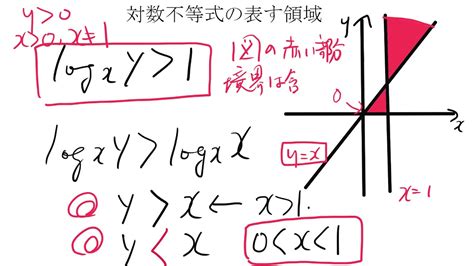 対数不等式の表す領域
y>0
x>0, x≠1
log_x y>1
図の赤い部分
境界は含
log_x y>log_x x
◎ y>x ← x>1.
◎ y<x 0<x<1
y
0
x
y=x
x=1